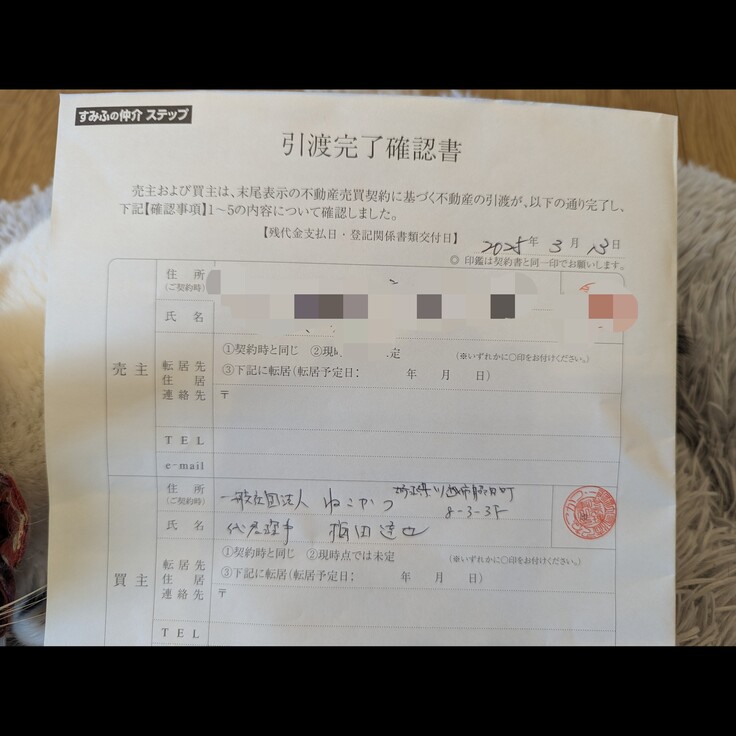 すみふの仲介 ステップ
引渡完了確認書
売主および買主は、末尾表示の不動産売買契約に基づく不動産の引渡が、以下の通り完了し、
下記【確認事項】1～5の内容について確認しました。
【残代金支払日・登記関係書類交付日】 2025年 3月 13日
◎ 印鑑は契約書と同一印でお願いします。
売主
住所
(ご契約時)
氏名
転居先
住居
連絡先
①契約時と同じ ②現時 定 (※いずれかに○印をお付けください。)
③下記に転居(転居予定日: 年 月 日)
〒
TEL
e-mail
買主
住所
(ご契約時)
一般社団法人 ねこかつ 埼玉県川越市
8-3-3F
氏名
代表理事 梅田達也
転居先
住居
連絡先
①契約時と同じ ②現時点では未定 (※いずれかに○印をお付けください。)
③下記に転居(転居予定日: 年 月 日)
〒
TEL